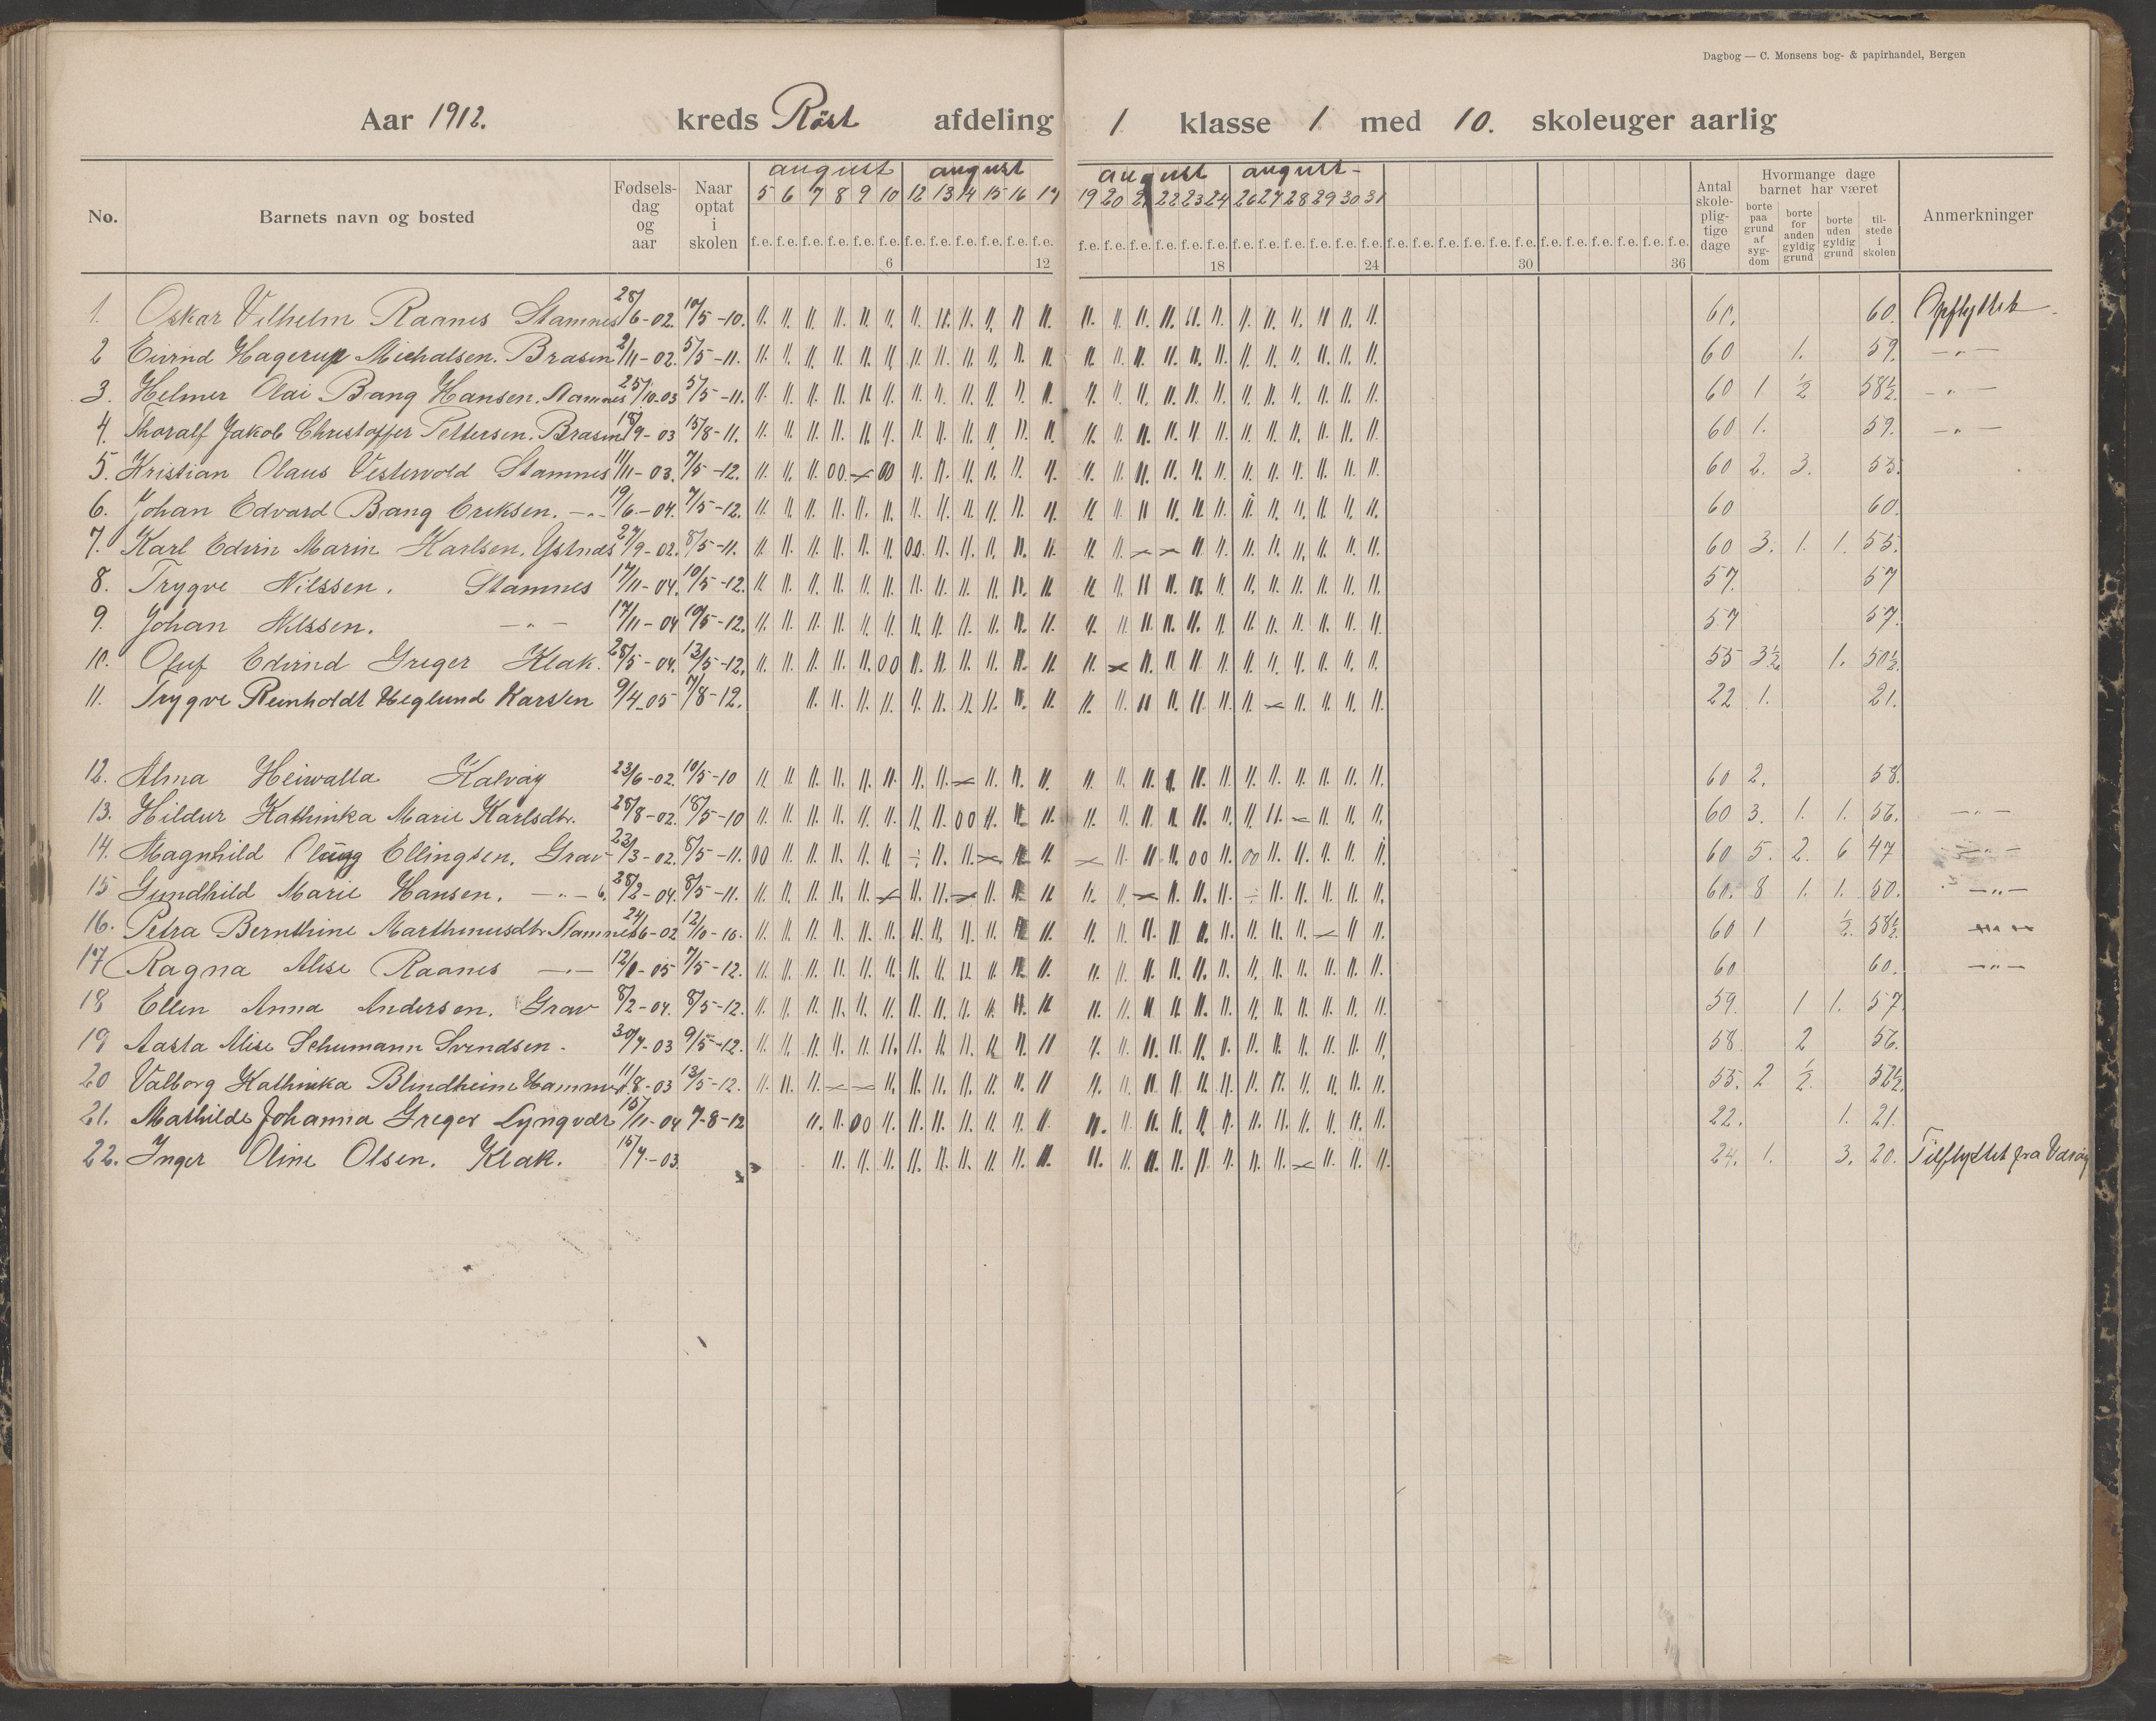 Dagbog — C. Monsens bog- & papirhandel, Bergen
Aar 1912. kreds Röst afdeling 1 klasse 1 med 10. skoleuger aarlig
No. Barnets navn og bosted Fødsels-dag og aar Naar optat i skolen august august august august Antal skole-plig-tige dage Hvormange dage barnet har været Anmerkninger
5 6 7 8 9 10 12 13 14 15 16 17 19 20 21 22 23 24 26 27 28 29 30 31
borte paa grund af syg-dom borte for anden gyldig grund borte uden gyldig grund til-stede i skolen
f.e. f.e. f.e. f.e. f.e. f.e. f.e. f.e. f.e. f.e. f.e. f.e. f.e. f.e. f.e. f.e. f.e. f.e. f.e. f.e. f.e. f.e. f.e. f.e. f.e. f.e. f.e. f.e. f.e. f.e. f.e. f.e. f.e. f.e. f.e. f.e.
6 12 18 24 30 36
1. Oskar Vilhelm Raanes Stamnes 28/6-02. 10/5-10. 60. 60. Opflyttet
2 Eivind Hagerup Michalsen. Brasen 2/11-02. 5/5-11. 60 1. 59. —„—
3. Helmer Olai Bang Hansen. Stamnes 25/10-03 5/5-11. 60 1 ½ 58½ —„—
4. Thoralf Jakob Christoffer Pettersen. Brasen 18/9-03 15/8-11. 60 1. 59. —„—
5. Kristian Olaus Vestervold Stamnes 11/11-03. 7/5-12. 60 2. 3. 55.
6. Johan Edvard Bang Eriksen. —„— 19/6-04. 7/5-12. 60 60.
7. Karl Edvin Marin Karlsen. Ystnes 27/9-02. 8/5-11. 60 3. 1. 1. 55.
8. Trygve Nilssen. Stamnes 17/11-04. 10/5-12. 57. 57
9. Johan Nilssen. —„— 17/11-04 10/5-12. 57 57.
10. Oluf Edvind Greger Klak. 28/5-04. 13/5-12. 55 3½ 1. 50½
11. Trygve Reinholdt Heglund Karsten 9/4-05 7/8-12. 22 1. 21.
12. Alma Heiwalla Kalvöy 23/6-02. 10/5-10 60 2. 58.
13. Hildur Kathinka Marie Karlsdtr. 28/8-02. 18/5-10 60 3. 1. 1. 56. —„—
14. Magnhild Ellingsen. Grav 23/3-02. 8/5-11. 60 5. 2. 6 47 —„—
15 Gundhild Marie Hansen. —„— 28/2-04. 8/5-11. 60. 8 1. 1. 50. —„—
16. Petra Bernthine Marthinusdtr. Stamnes 24/6-02 12/10-10. 60 1 ½. 58½.
17 Ragna Alise Raanes —„— 7/5-12. 60 60. —„—
18 Ellen Anna Andersen. Grav 8/2-04. 8/5-12. 59. 1 1. 57
19 Aasta Alise Schumann Svendsen. 30/7-03 9/5-12. 58 2 56.
20 Valborg Kathinka Blindheim Hammer 11/8-03 13/5-12. 55. 2 ½. 52½.
21. Mathilde Johanna Greger Lyngvær 15/11-04 7-8-12 22. 1. 21.
22. Inger Oline Olsen. Klak. 15/7-03. 24. 1. 3. 20. Tilflyttet fra Værøy